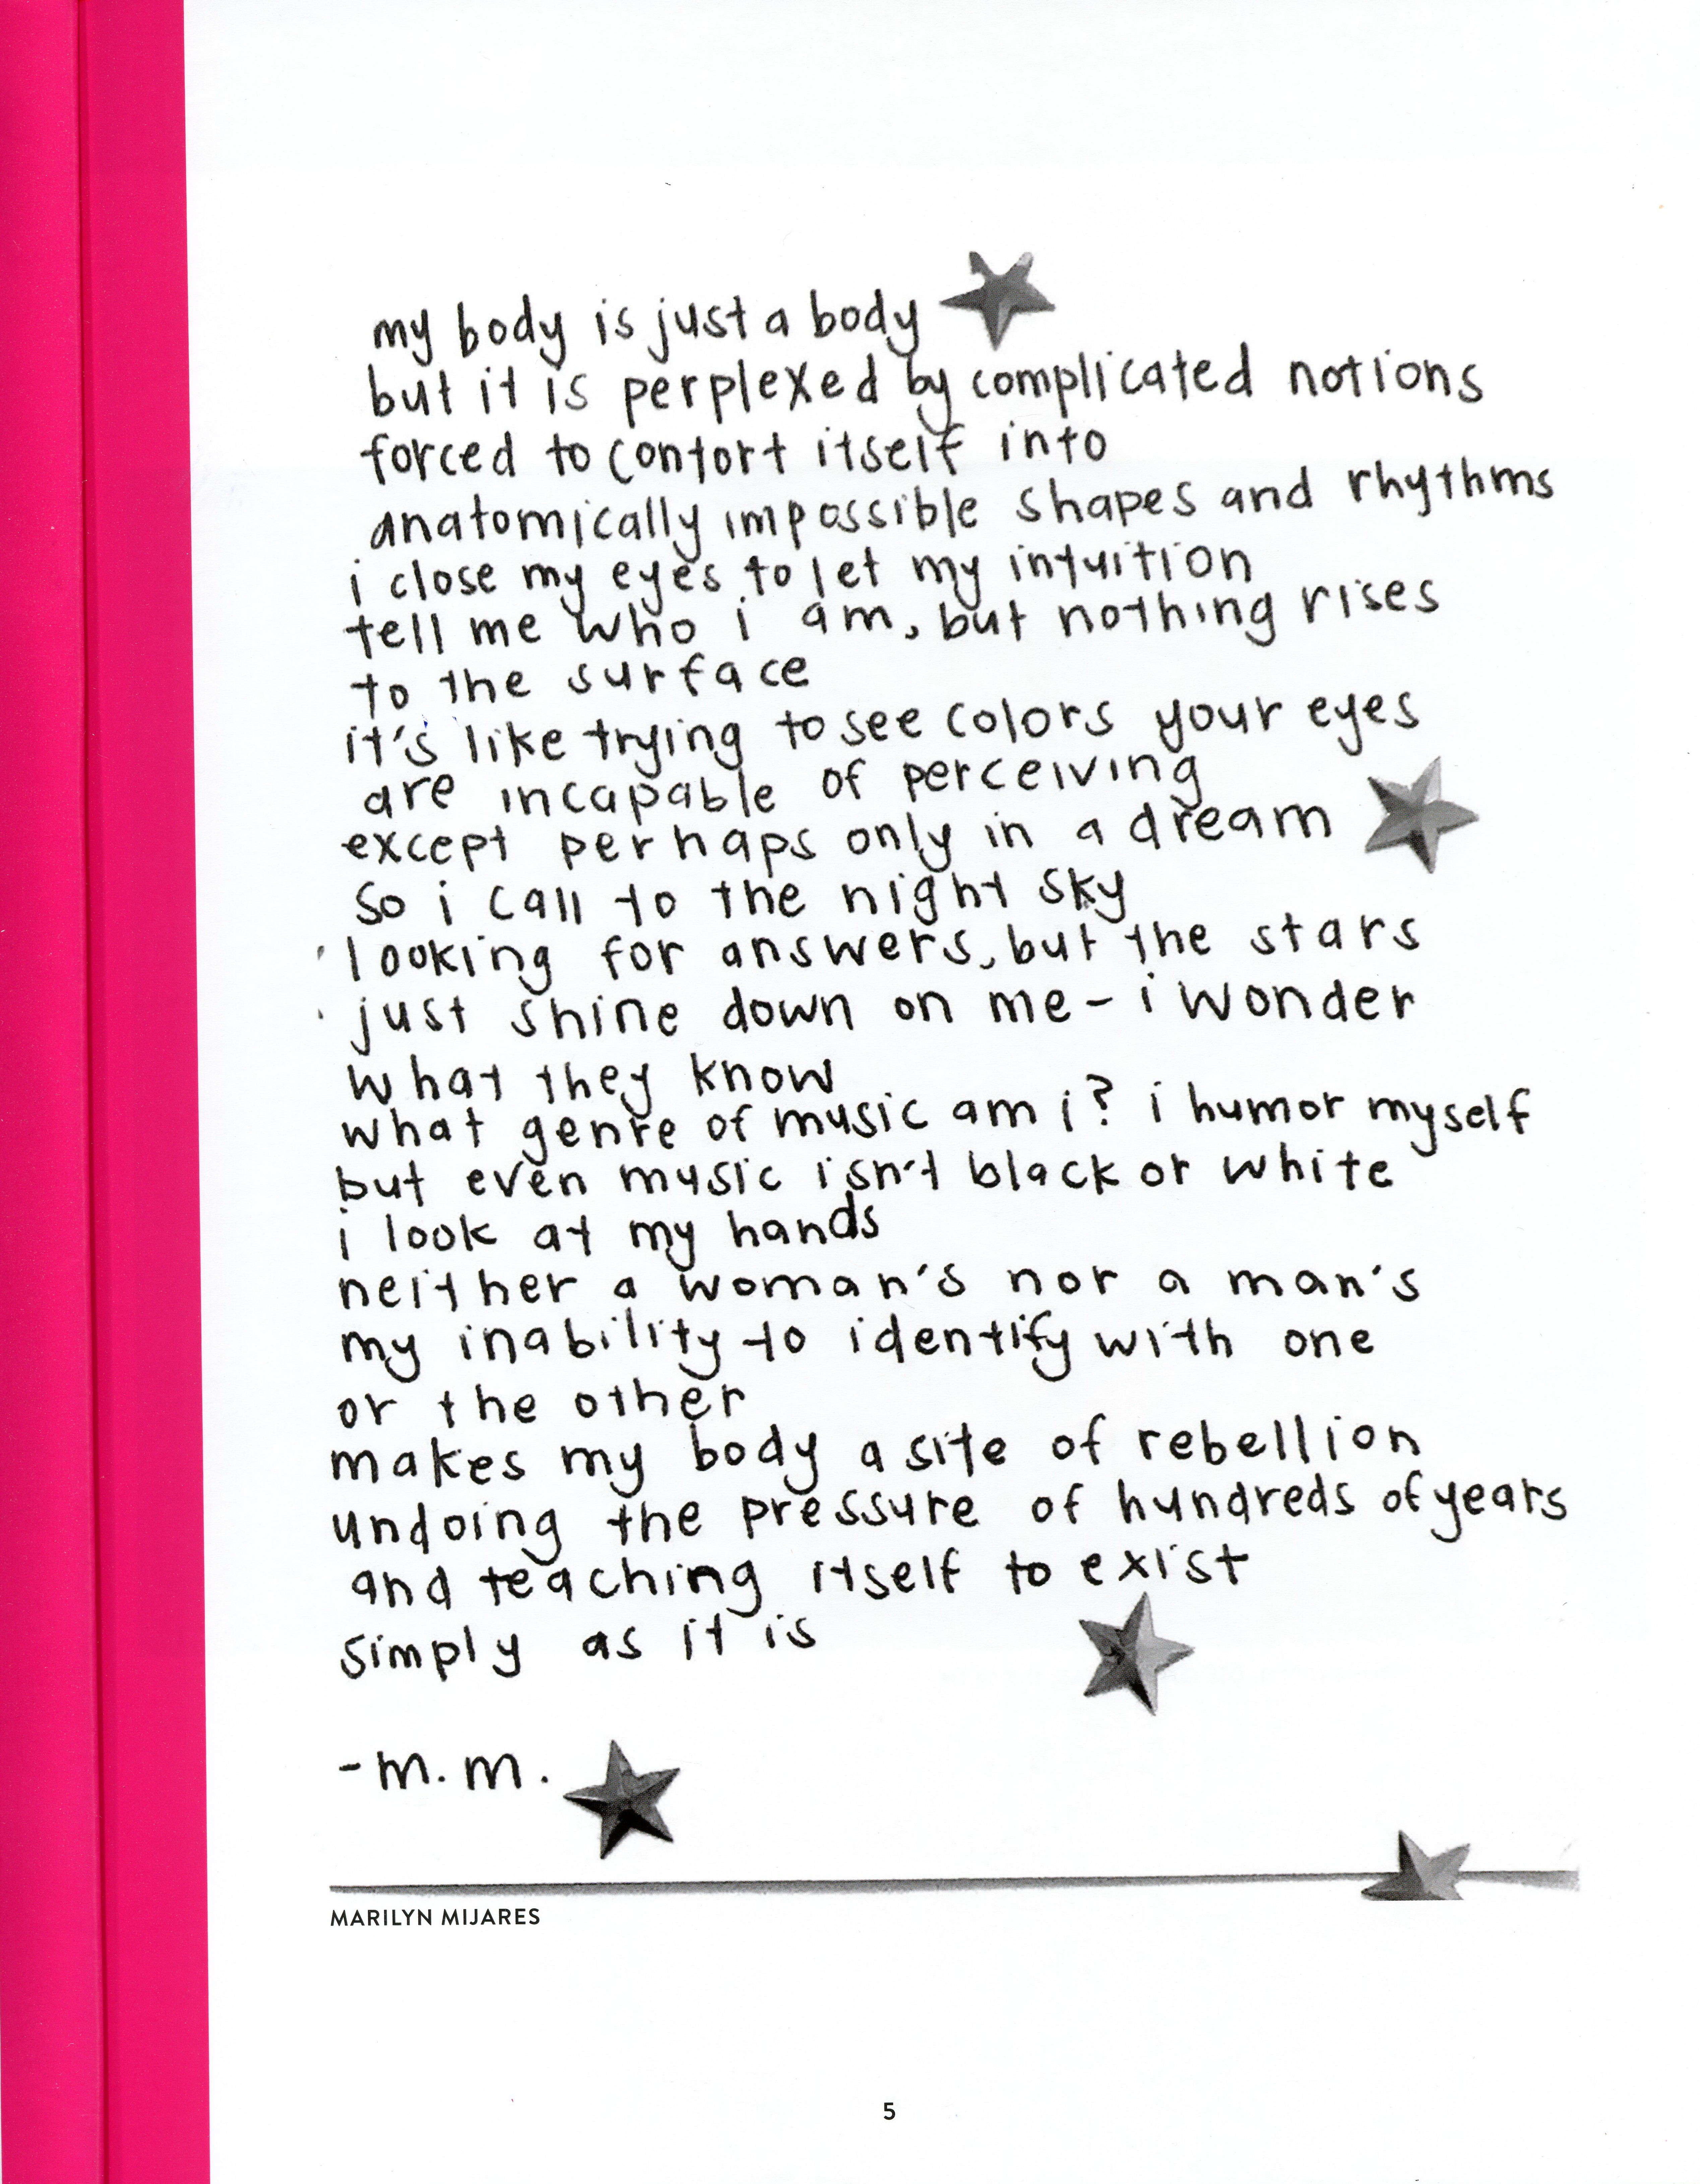 my body is just a body
but it is perplexed by complicated notions
forced to contort itself into
anatomically impossible shapes and rhythms
i close my eyes to let my intuition
tell me who i am, but nothing rises
to the surface
it's like trying to see colors your eyes
are incapable of perceiving
except perhaps only in a dream
so i call to the night sky
looking for answers, but the stars
just shine down on me - i wonder
what they know
what genre of music am i? i humor myself
but even music isn't black or white
i look at my hands
neither a woman's nor a man's
my inability to identify with one
or the other
makes my body a site of rebellion
undoing the pressure of hundreds of years
and teaching itself to exist
simply as it is
- m. m.
MARILYN MIJARES
5